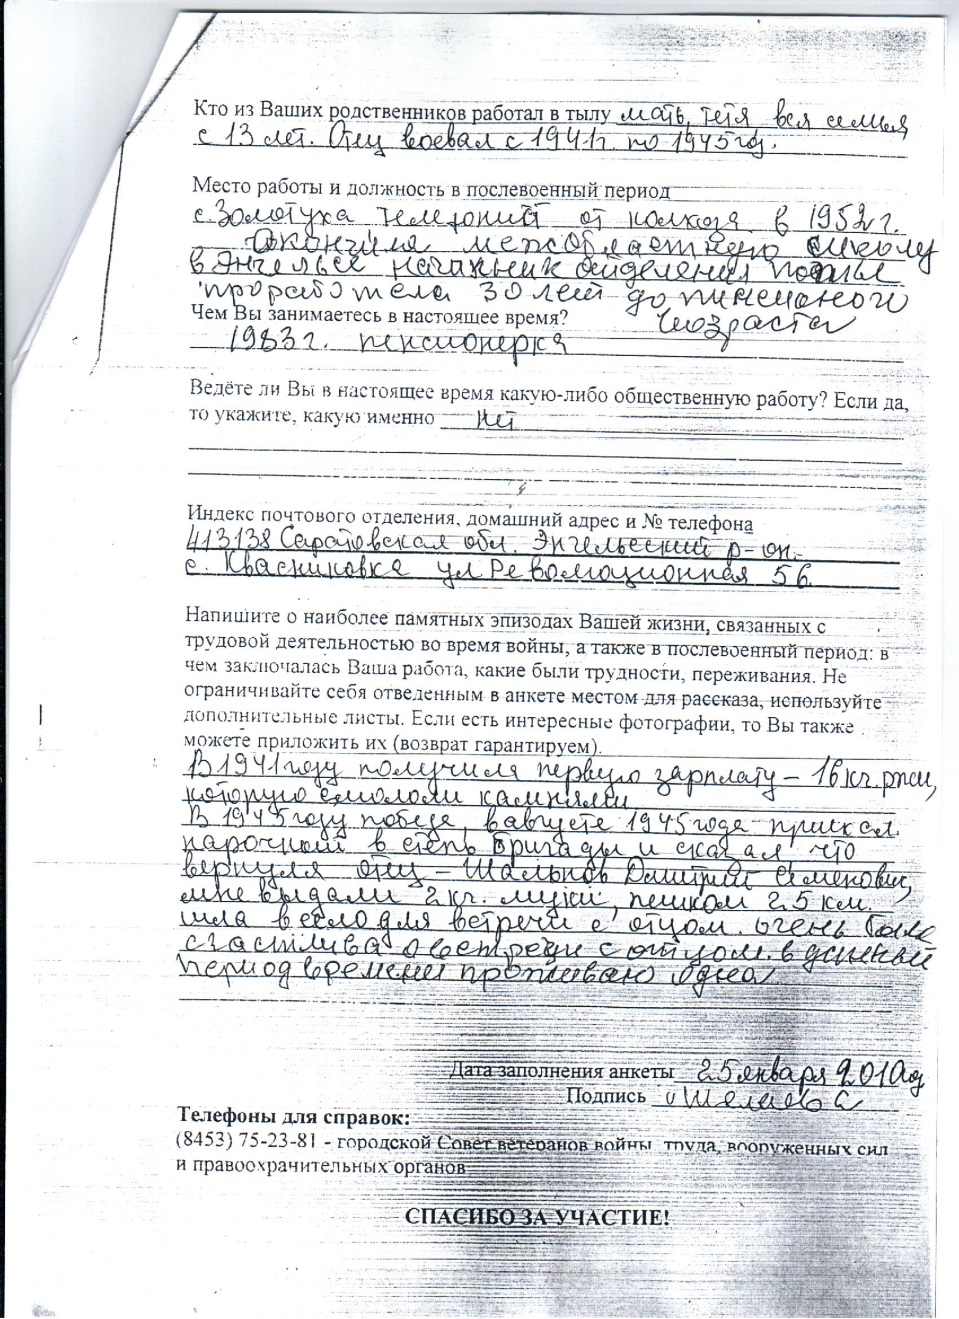 Кто из Ваших родственников работал в тылу мать, тетя вся семья
с 13 лет. Отец воевал с 1941г. по 1945 год.
Место работы и должность в послевоенный период
с. Золотуха от колхоза в 1952 г.
Окончила межобластную школу
в Энгельсе начальник отделения почты
проработала 30 лет до пенсионого
возраста
Чем Вы занимаетесь в настоящее время?
1983 г. пенсионерка
Ведёте ли Вы в настоящее время какую-либо общественную работу? Если да,
то укажите, какую именно нет
Индекс почтового отделения, домашний адрес и № телефона
413138 Саратовская обл. Энгельсский р-он.
с. Квасниковка ул Революционная 56
Напишите о наиболее памятных эпизодах Вашей жизни, связанных с
трудовой деятельностью во время войны, а также в послевоенный период: в
чем заключалась Ваша работа, какие были трудности, переживания. Не
ограничивайте себя отведенным в анкете местом для рассказа, используйте
дополнительные листы. Если есть интересные фотографии, то Вы также
можете приложить их (возврат гарантируем).
В 1941 году получила первую зарплату – 16 кг. ржи,
которую смололи камнями
В 1945 году победа, в августе 1945 года приехал
нарочный в степь бригады и сказал, что
вернулся отец – Дмитрий Семенович,
мне выдали 2 кг. муки, пешком 25 км.
шла в село для встречи с отцом. очень была
счастлива о встречи с отцом. в данный
период времени проживаю одна
Дата заполнения анкеты 25 января 2010 год
Подпись
Телефоны для справок:
(8453) 75-23-81 - городской Совет ветеранов войны, труда, вооруженных сил
и правоохранительных органов
СПАСИБО ЗА УЧАСТИЕ!